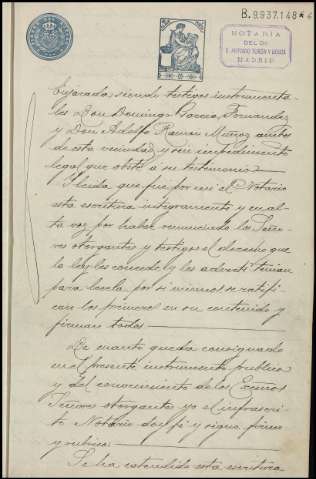 B.9.937.148*
NOTARÍA
DEL DR.
MADRID
siendo testigos instrumenta-
les Don Domingo García Fernandez
y Don Adolfo Ramon Muñoz ambos
de esta vecindad y sin impedimento
legal que obste a su testimonio
Y leida que fue por mi el Notario
esta escritura integramente y en al-
ta voz por haber renunciado los Seño-
res otorgantes y testigos el derecho que
la ley les concede y les adverti tenian
para leerla por si mismos se ratifi-
can los primeros en su contenido y
firman todos
De cuanto queda consignado
en el presente instrumento publico
y del conocimiento de los Excmos
Señores otorgantes yo el infrascri-
to Notario doy fe y signo firmo
y rubrico.
Se ha extendido esta escritura